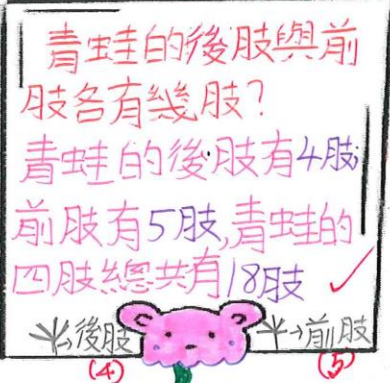 青蛙的後肢與前
肢各有幾肢?
青蛙的後肢有4肢,
前肢有5肢,青蛙的
四肢總共有18肢
後肢 →前肢
(4) (5)